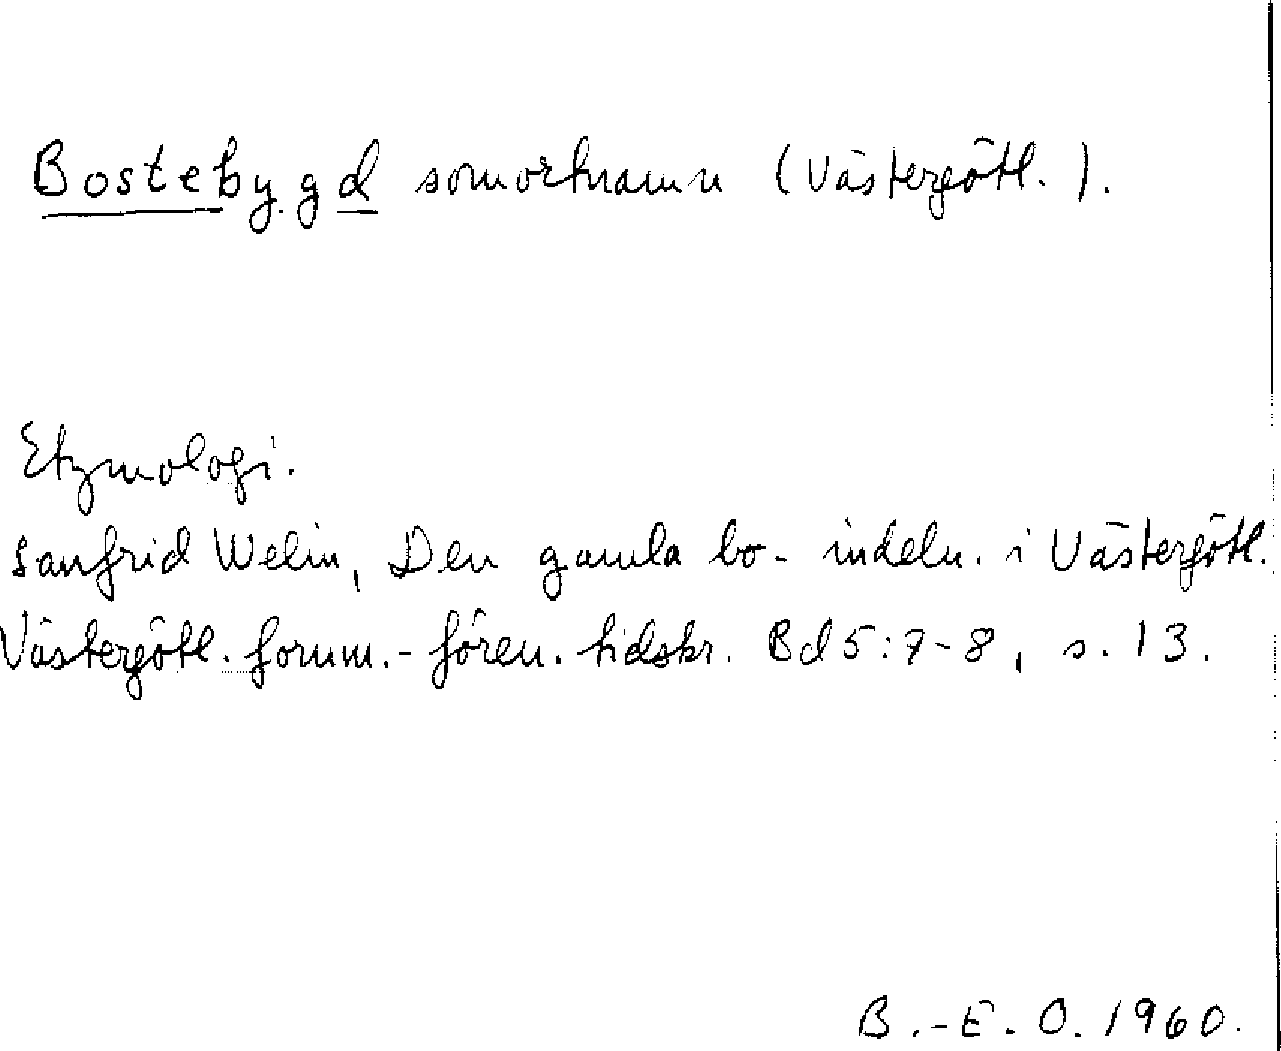 Bostebygd som ortnamn (Västergötl.).
Etymologi.
Sanfrid Welin, Den gamla bo-indeln. i Västergötl.
Västergötl. fornm.-fören. tidskr. Bd 5:7-8, s. 13.
B.-E. O. 1960.